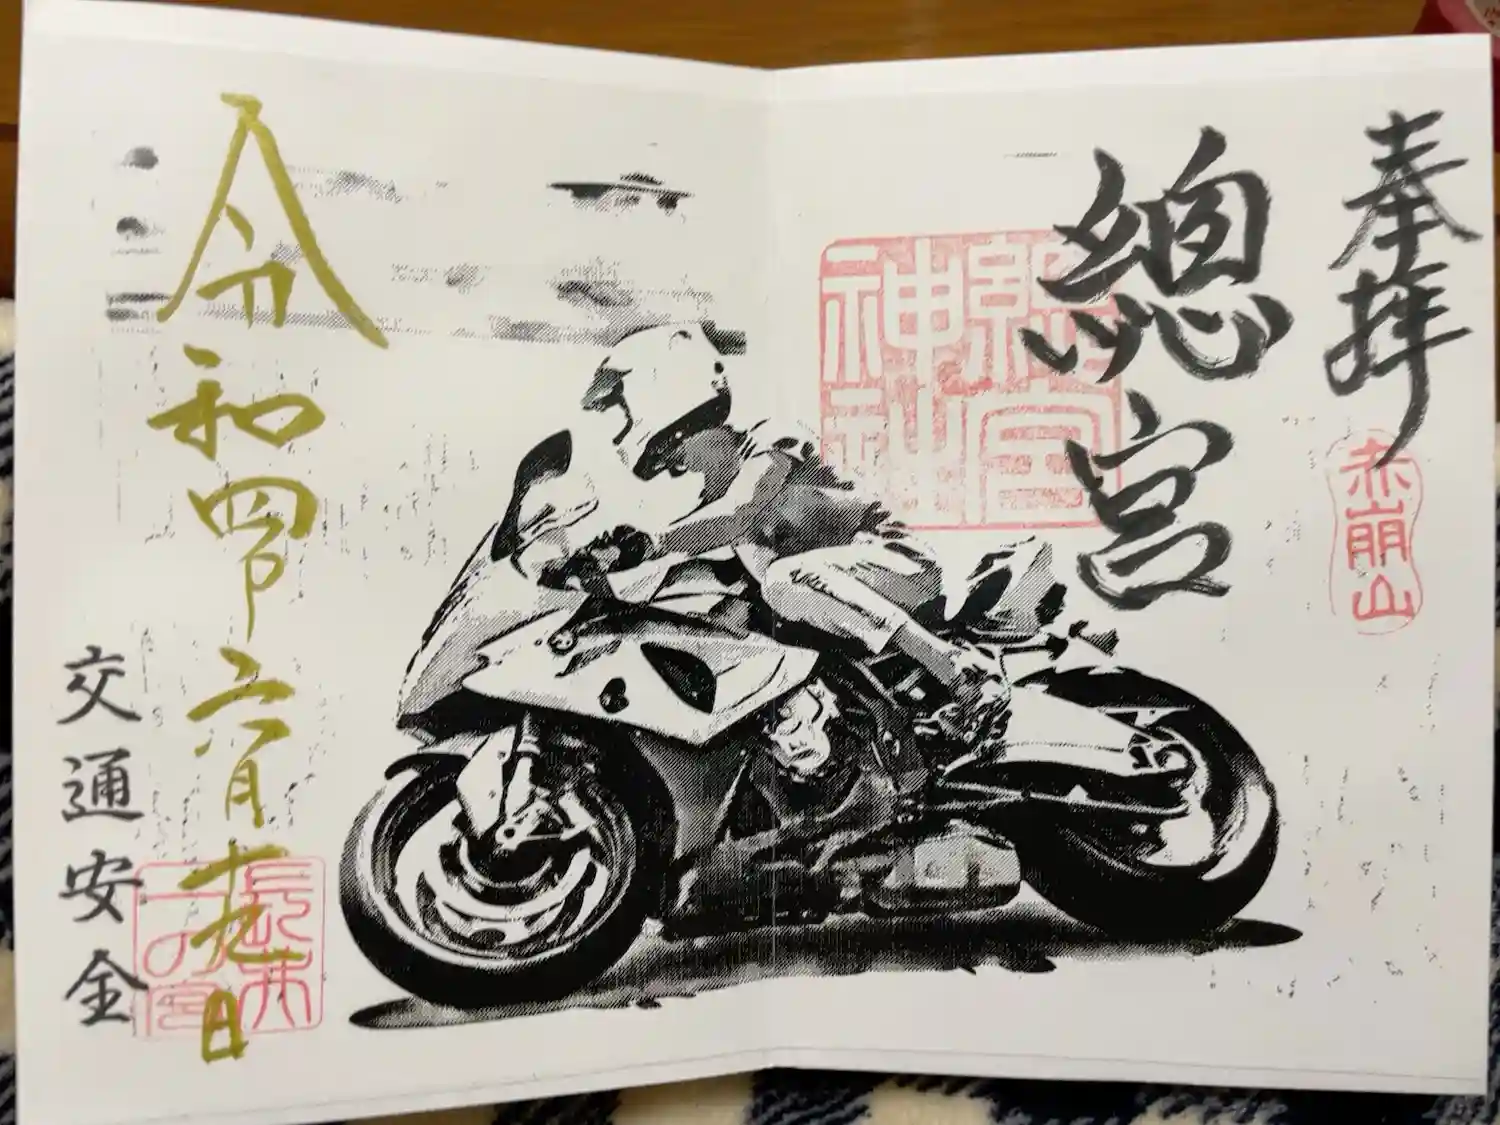 奉拝
赤崩山
總宮
總宮
神社
令和四年六月十九日
長井
一の宮
交通安全